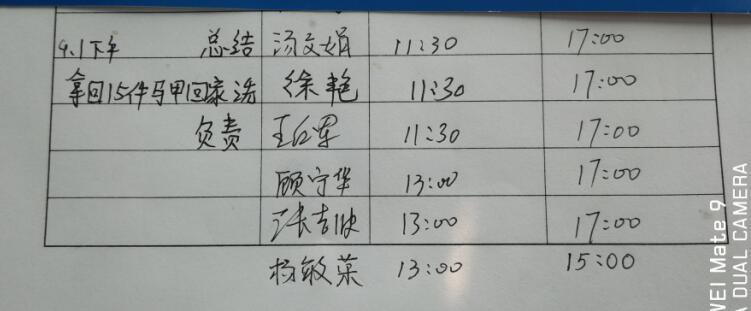 9.1下午 总结 汤文娟 11:30 17:00
拿回15件马甲回家洗 徐艳 11:30 17:00
负责 王红军 11:30 17:00
顾守华 13:00 17:00
张吉 13:00 17:00
杨敏菜 13:00 15:00
WEI Mate 9
DUAL CAMERA